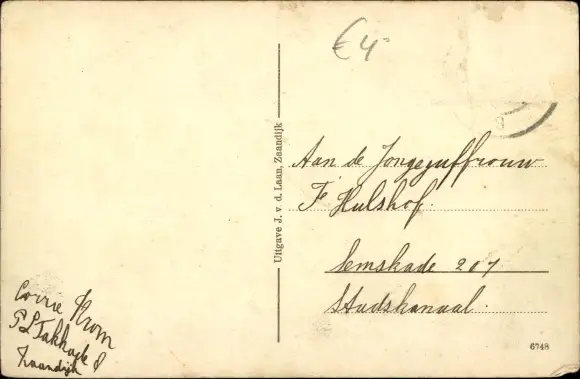 €4-
Uitgave J. v. d. Laan, Zaandijk
Aan de Jongejuffrouw
F. Hulshof.
Semskade 207
Stadskanaal.
Corrie Krom
Zaandijk
6748